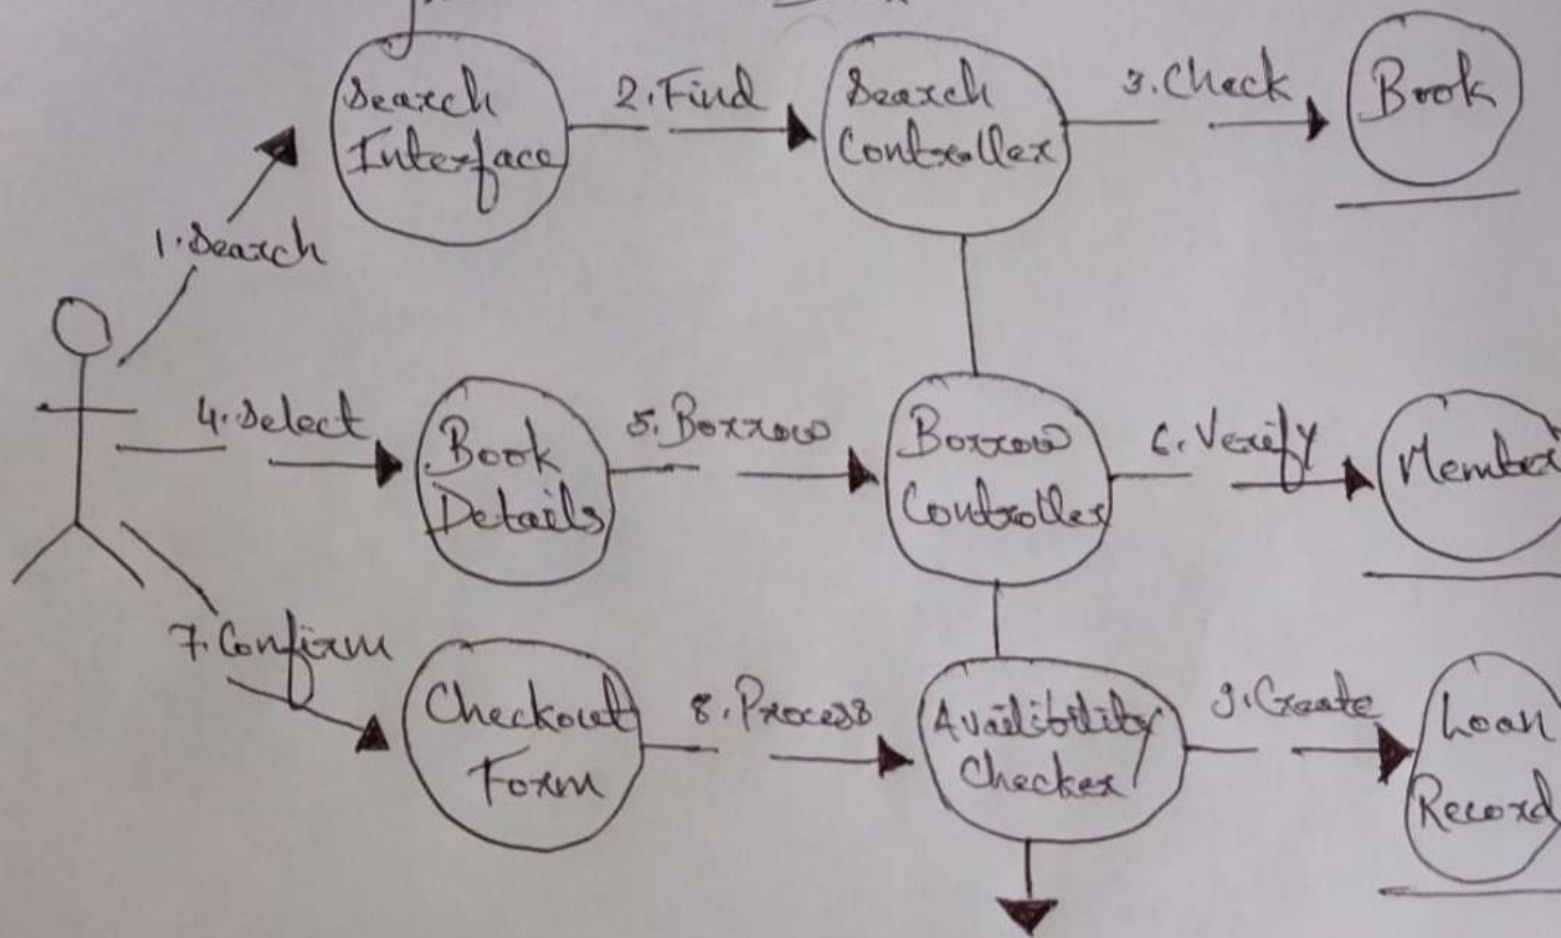 Search
Interface
2. Find
Search
Controller
3. Check
Book
1. Search
4. Select
Book
Details
5. Borrow
Borrow
Controller
6. Verify
Member
7. Confirm
Checkout
Form
8. Process
Availibility
Checker
9. Create
Loan
Record